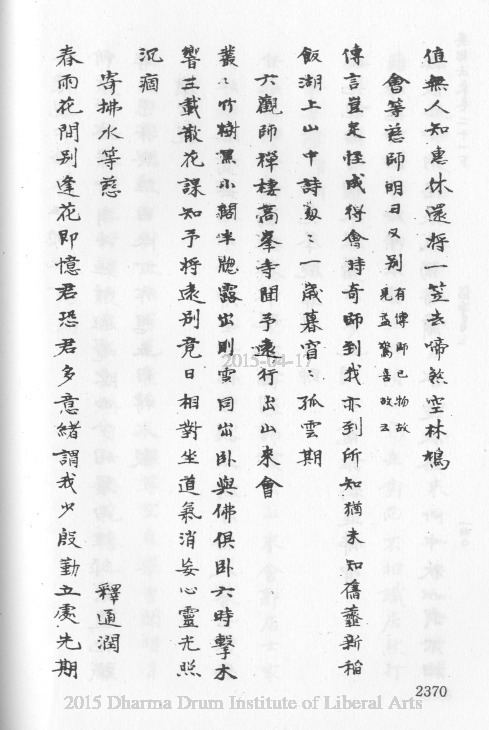 值無人知惠休還將一笠去啼煞空林鳩
會等慈師明日又別有傳師已物故見益驚喜故云
傳言豈足怪成得會時奇師到我亦到所知猶未知舊虀新稻
飯湖上山中詩一歲暮窅窅孤雲期
六觀師禪棲高峯寺聞予遠行出山來會
叢叢竹樹黑小閣半牕露出則雲同出臥與佛俱臥六時擊木
響三載散花課知予將遠別竟日相對坐道氣消妄心靈光照
沉痼
寄拂水等慈
釋通潤
春雨花間別逢花即憶君恐君多意緒謂我少殷勤立處先期
2370
2015-04-17
2015 Dharma Drum Institute of Liberal Arts